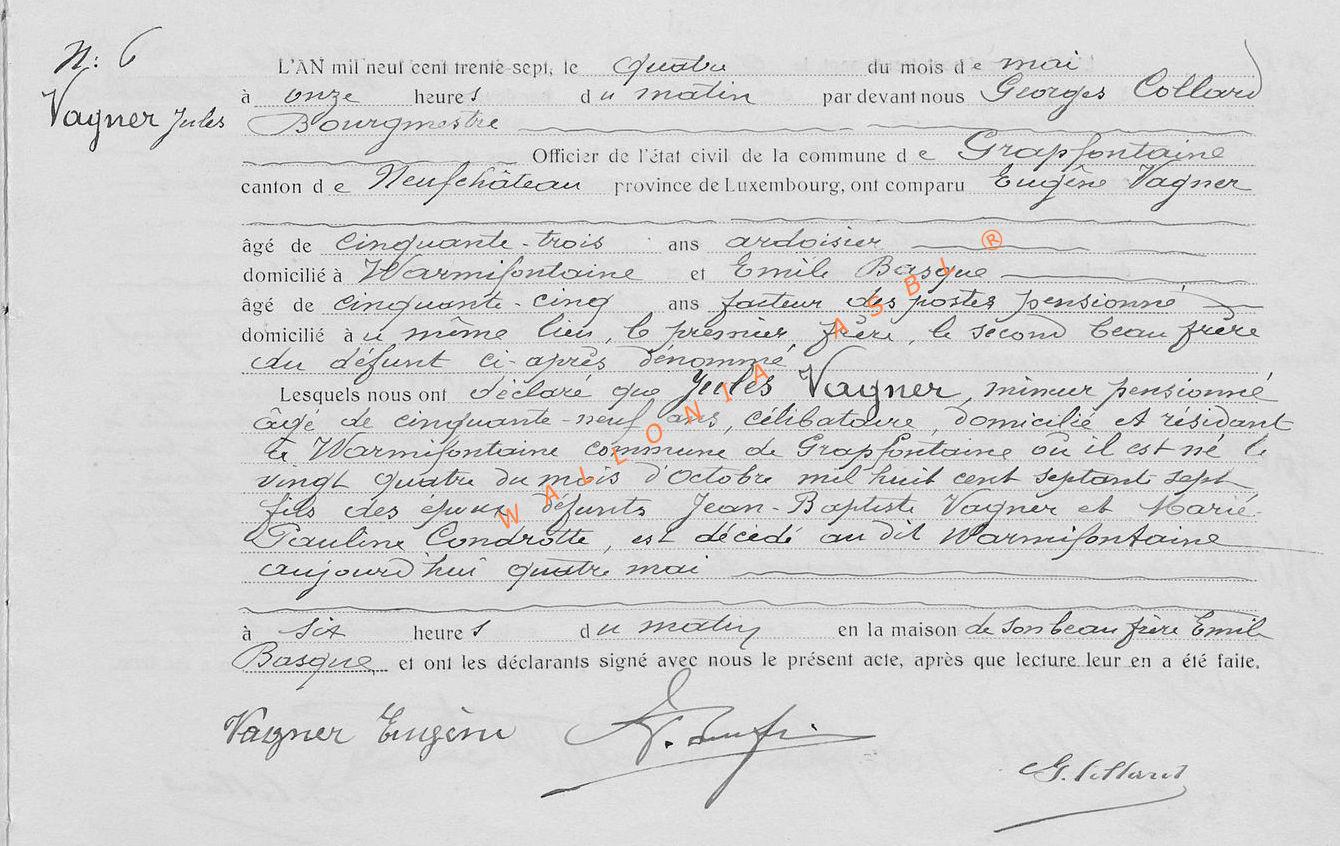 N: 6
Vagner Jules
L'AN mil neuf cent trente-sept, le quatre du mois de mai
à onze heures du matin par devant nous Georges Collard
Bourgmestre
Officier de l'état civil de la commune de Grapfontaine
canton de Neufchâteau province de Luxembourg, ont comparu Eugène Vagner
âgé de cinquante-trois ans ardoisier
domicilié à Warmifontaine et Emile Basque
âgé de cinquante-cinq ans facteur des postes pensionné
domicilié au même lieu, le premier frère, le second beau frère
du défunt ci-après dénommé
Lesquels nous ont déclaré que Jules Vagner, mineur pensionné
âgé de cinquante-neuf ans, célibataire, domicilié et résidant
à Warmifontaine commune de Grapfontaine où il est né le
vingt quatre du mois d'Octobre mil huit cent septante sept
fils des époux défunts Jean-Baptiste Vagner et Marie-
Pauline Condrotte, est décédé au dit Warmifontaine
aujourd'hui quatre mai
à six heures du matin en la maison de son beau frère Emile
Basque et ont les déclarants signé avec nous le présent acte, après que lecture leur en a été faite.
Vagner Eugène
G. Collard
WALLONIA ASBL ®